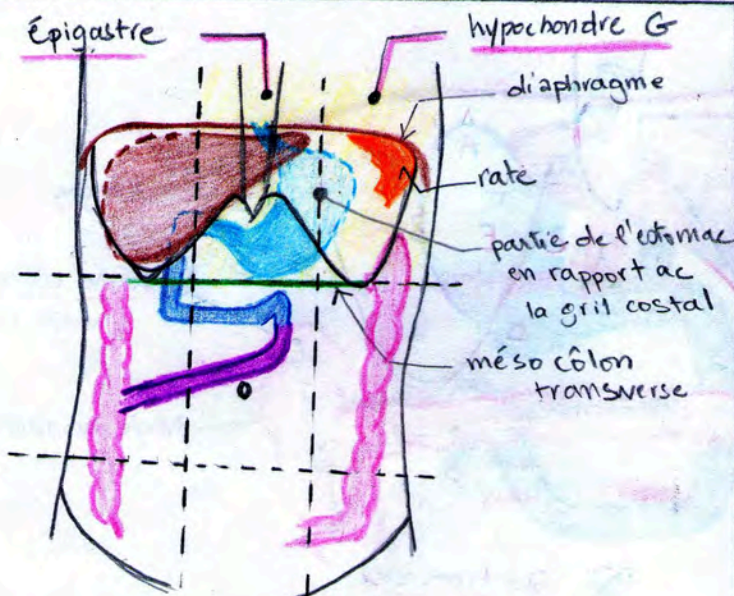 épigastre
hypochondre G
diaphragme
rate
partie de l'estomac
en rapport ac
la gril costal
méso côlon
transverse